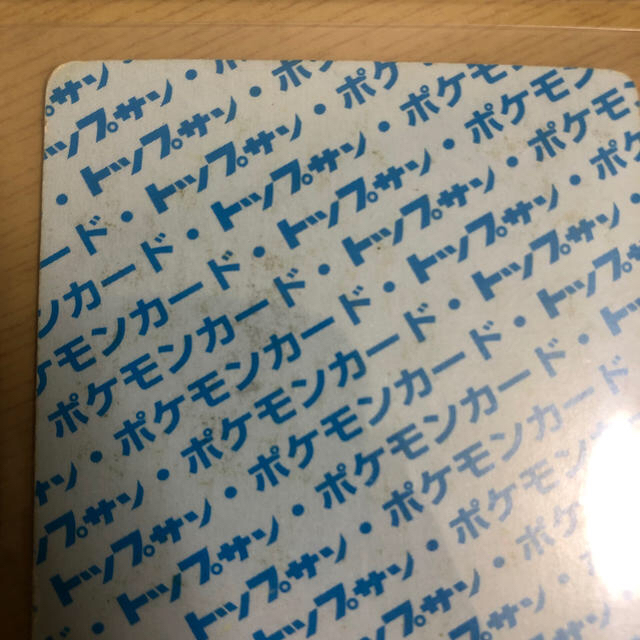 サン
ップサン・ポ
・トップサン・ポケ
ード・トップサン・ポケモ
ンカード・トップサン・ポケモン
ケモンカード・トップサン・ポケモ
ポケモンカード・トップサン・ポケ
・ポケモンカード・トップサン・
サン・ポケモンカード・トップサ
ップサン・ポケモンカード・ト
トップサン・ポケモンカード
トップサン・ポケモン
トップサン・ポケ
トップサン